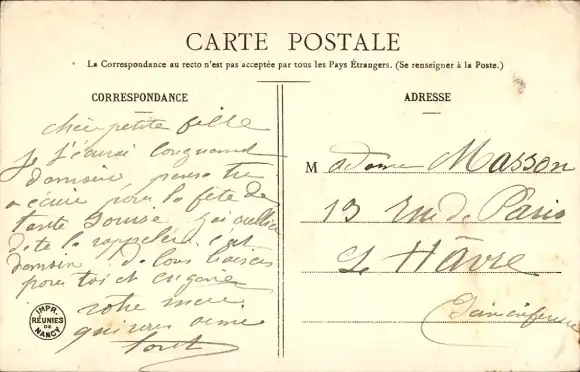 CARTE POSTALE
La Correspondance au recto n'est pas acceptée par tous les Pays Étrangers. (Se renseigner à la Poste.)
CORRESPONDANCE
chère petite fille
Je
demain, pense
écrire pour la fête de
tante Louise j'ai oublié
de te la rappeler c'est
demain
pour toi et
votre mère
qui vous aime
IMPR. RÉUNIES DE NANCY
ADRESSE
Madame Masson
13 Rue de Paris
Le Hâvre